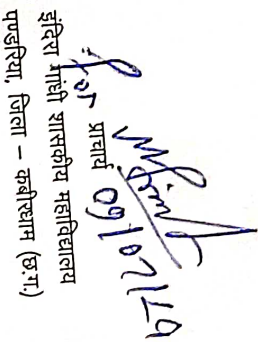 for प्राचार्य
इंदिरा गांधी शासकीय महाविद्यालय
पण्डरिया, जिला – कबीरधाम (छ.ग.)